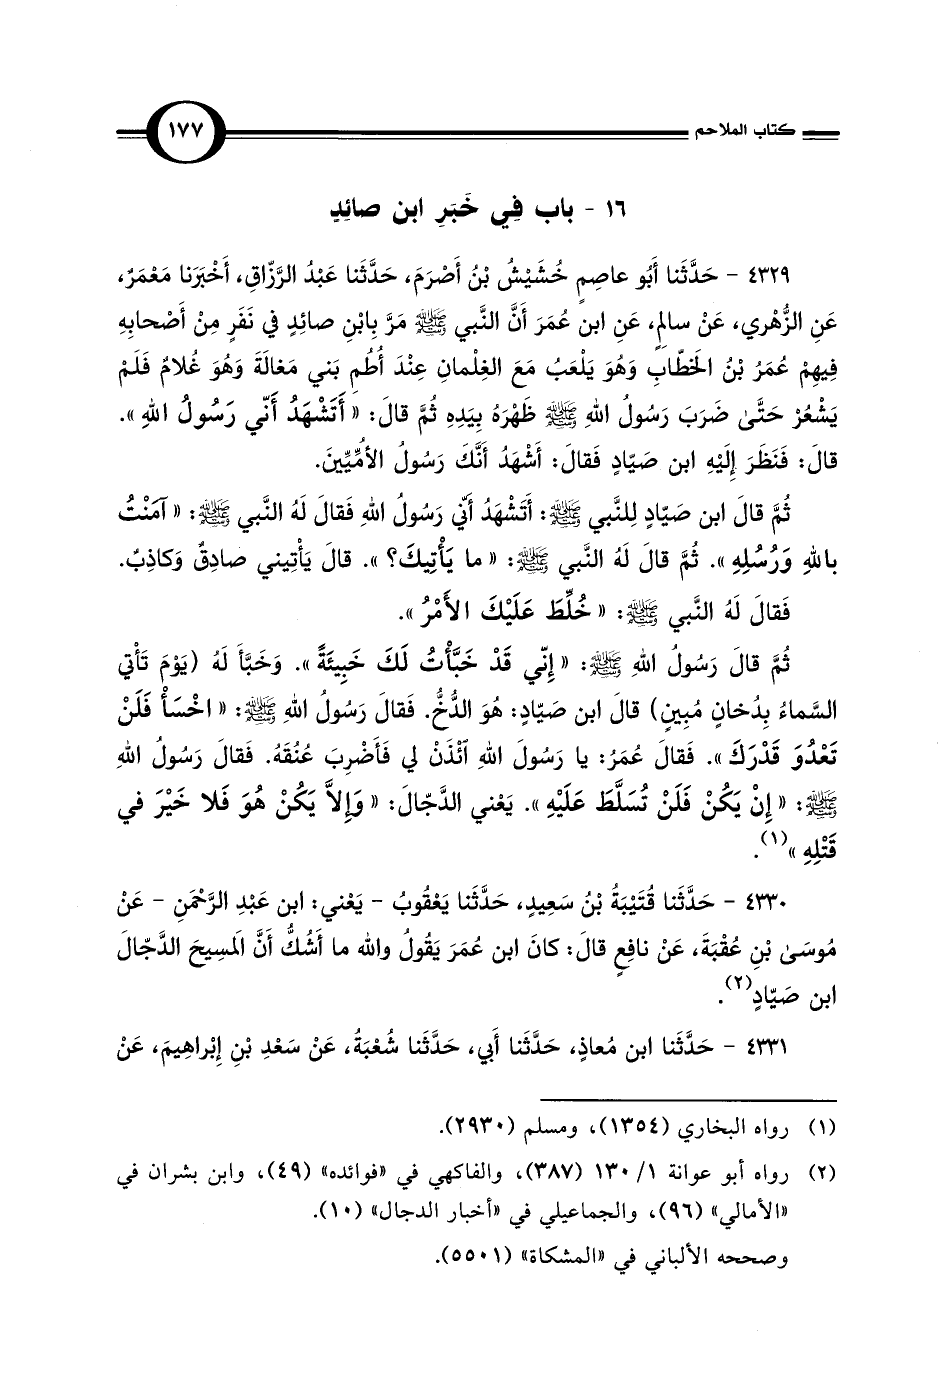 كتاب الملاحم ١٧٧
١٦ - باب فِي خَبَرِ ابن صائِدٍ
٤٣٢٩ - حَدَّثَنا أَبُو عاصِمٍ خُشَيْشُ بْنُ أَصْرَمَ، حَدَّثَنا عَبْدُ الرَّزّاقِ، أَخْبَرَنا مَعْمَرٌ،
عَنِ الزُّهْري، عَنْ سالِمٍ، عَنِ ابن عُمَرَ أَنَّ النَّبي ﷺ مَرَّ بِابْنِ صائِدٍ في نَفَرٍ مِنْ أَصْحابِهِ
فِيهِمْ عُمَرُ بْنُ الخَطّابِ وَهُوَ يَلْعَبُ مَعَ الغِلْمانِ عِنْدَ أُطُمِ بَني مَغالَةَ وَهُوَ غُلامٌ فَلَمْ
يَشْعُرْ حَتَّىٰ ضَرَبَ رَسُولُ اللهِ ﷺ ظَهْرَهُ بِيَدِهِ ثُمَّ قالَ: « أَتَشْهَدُ أَنّي رَسُولُ اللهِ ».
قالَ: فَنَظَرَ إِلَيْهِ ابن صَيّادٍ فَقالَ: أَشْهَدُ أَنَّكَ رَسُولُ الأُمِّيِّينَ.
ثُمَّ قالَ ابن صَيّادٍ لِلنَّبي ﷺ: أَتَشْهَدُ أَنّي رَسُولُ اللهِ فَقالَ لَهُ النَّبي ﷺ: « آمَنْتُ
بِاللهِ وَرُسُلِهِ ». ثُمَّ قالَ لَهُ النَّبي ﷺ: « ما يَأْتِيكَ؟ ». قالَ يَأْتِيني صادِقٌ وَكاذِبٌ.
فَقالَ لَهُ النَّبي ﷺ: « خُلِّطَ عَلَيْكَ الأَمْرُ ».
ثُمَّ قالَ رَسُولُ اللهِ ﷺ: « إِنّي قَدْ خَبَّأْتُ لَكَ خَبِيئَةً ». وَخَبَّأَ لَهُ (يَوْمَ تَأْتي
السَّماءُ بِدُخانٍ مُبِينٍ) قالَ ابن صَيّادٍ: هُوَ الدُّخُّ. فَقالَ رَسُولُ اللهِ ﷺ: « اخْسَأْ فَلَنْ
تَعْدُوَ قَدْرَكَ ». فَقالَ عُمَرُ: يا رَسُولَ اللهِ ائْذَنْ لي فَأَضْرِبَ عُنُقَهُ. فَقالَ رَسُولُ اللهِ
ﷺ: « إِنْ يَكُنْ فَلَنْ تُسَلَّطَ عَلَيْهِ ». يَعْني الدَّجّالَ: « وَإِلاَّ يَكُنْ هُوَ فَلا خَيْرَ في
قَتْلِهِ »(١).
٤٣٣٠ - حَدَّثَنا قُتَيْبَةُ بْنُ سَعِيدٍ، حَدَّثَنا يَعْقُوبُ - يَعْني: ابن عَبْدِ الرَّحْمَنِ - عَنْ
مُوسَىٰ بْنِ عُقْبَةَ، عَنْ نافِعٍ قالَ: كانَ ابن عُمَرَ يَقُولُ والله ما أَشُكُّ أَنَّ المَسِيحَ الدَّجّالَ
ابن صَيّادٍ(٢).
٤٣٣١ - حَدَّثَنا ابن مُعاذٍ، حَدَّثَنا أَبي، حَدَّثَنا شُعْبَةُ، عَنْ سَعْدِ بْنِ إِبْراهِيمَ، عَنْ
(١) رواه البخاري (١٣٥٤)، ومسلم (٢٩٣٠).
(٢) رواه أبو عوانة ١/ ١٣٠ (٣٨٧)، والفاكهي في «فوائده» (٤٩)، وابن بشران في
«الأمالي» (٩٦)، والجماعيلي في «أخبار الدجال» (١٠).
وصححه الألباني في «المشكاة» (٥٥٠١).